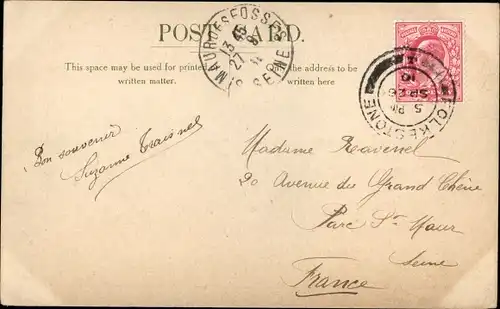 POST CARD.
This space may be used for printed
written matter.
Only the address to be
written here.
ST MAUR DES FOSSES
SEINE
FOLKESTONE
5 PM
SP 26
10
Bon souvenir
Suzanne Traisnel
Madame Ravenel
20 Avenue du Grand Chêne
Parc St Maur
Seine
France